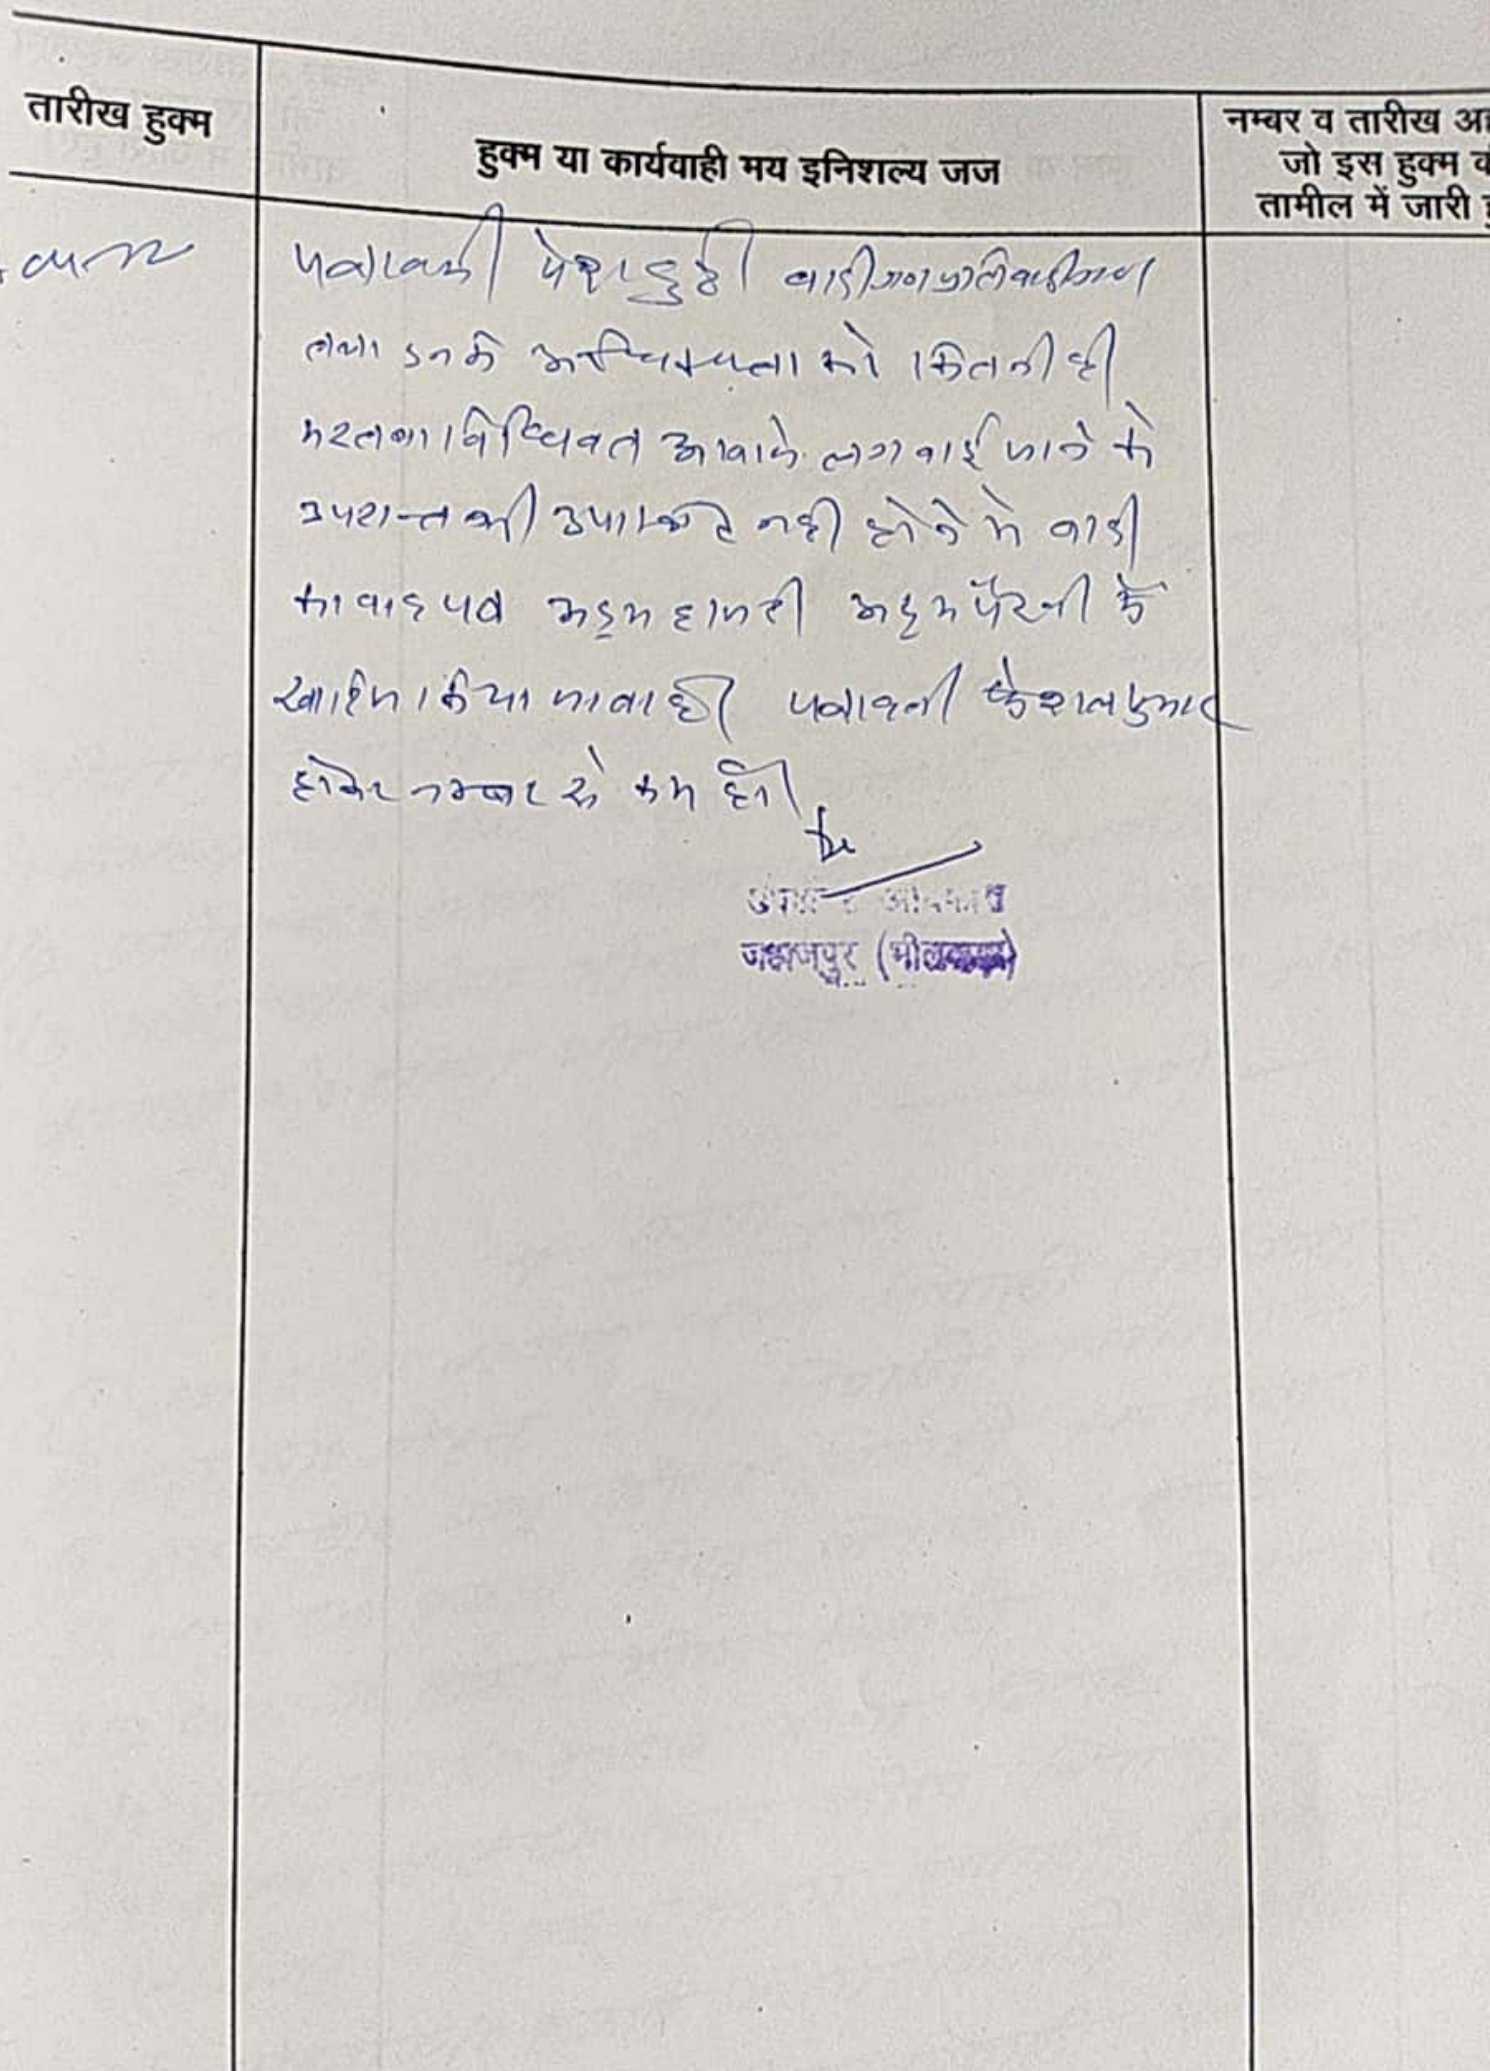 तारीख हुक्म
हुक्म या कार्यवाही मय इनिशल्य जज
नम्बर व तारीख अह
जो इस हुक्म की
तामील में जारी हु
पत्रावली पेश हुई। वादीगण प्रतिवादीगण
तथा उनके अधिवक्ता को कितनी ही
मरतबा विधिवत आवाजे लगवाई जाने के
उपरान्त भी उपस्थित नही होने से वादी
का वाद पत्र अदम हाजरी अदम पैरवी में
खारिज किया जाता है। पत्रावली फैशल शुमार
होकर नम्बर से कम हो।
उपखण्ड अधिकारी
जहाजपुर (भीलवाड़ा)